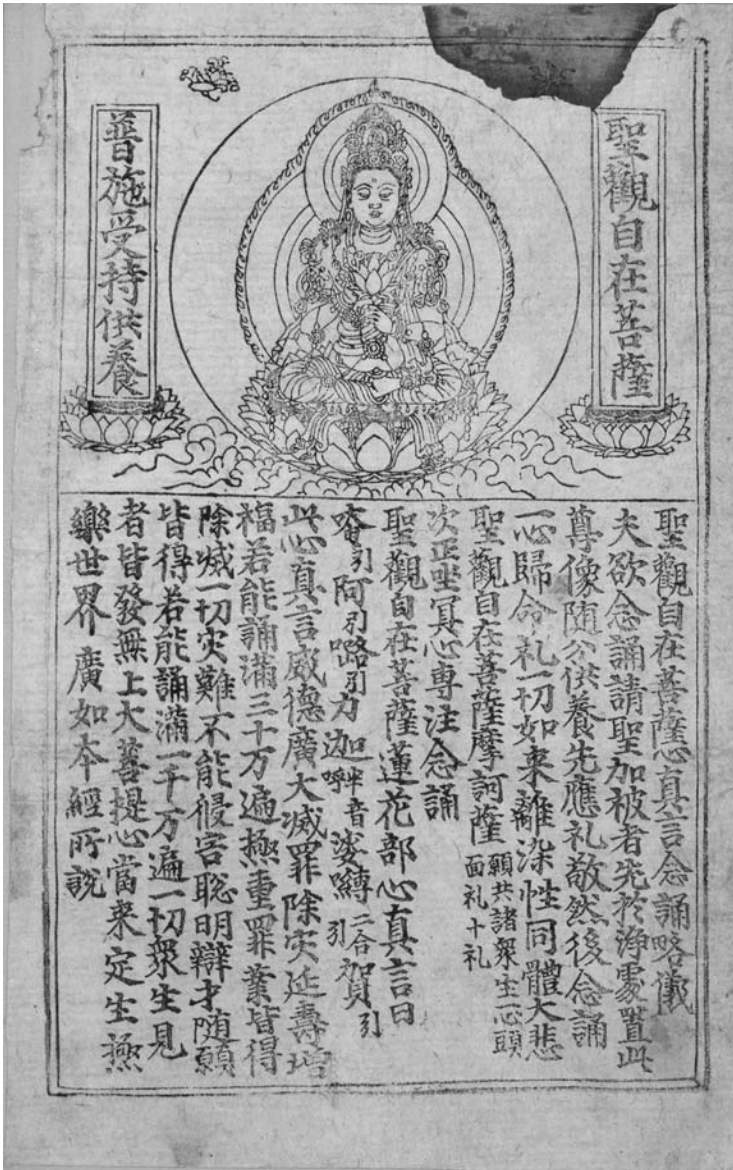 聖觀自在菩薩
普施受持供養
聖觀自在菩薩心真言念誦略儀
夫欲念誦請聖加被者先於淨處置此
尊像随分供養先應礼敬然後念誦
一心歸命礼一切如来離染性同體大悲
聖觀自在菩薩摩訶薩願共諸衆生一心頭面礼十礼
次正坐冥心專注念誦
聖觀自在菩薩蓮花部心真言曰
唵引阿引嚕引力迦半音呼娑嚩二合引賀引
此心真言威德廣大滅罪除灾延壽增
福若能誦滿三十万遍極重罪業皆得
除滅一切灾難不能侵害聡明辯才随願
皆得若能誦滿一千万遍一切衆生見
者皆發無上大菩提心當来定生極
樂世界廣如本經所說